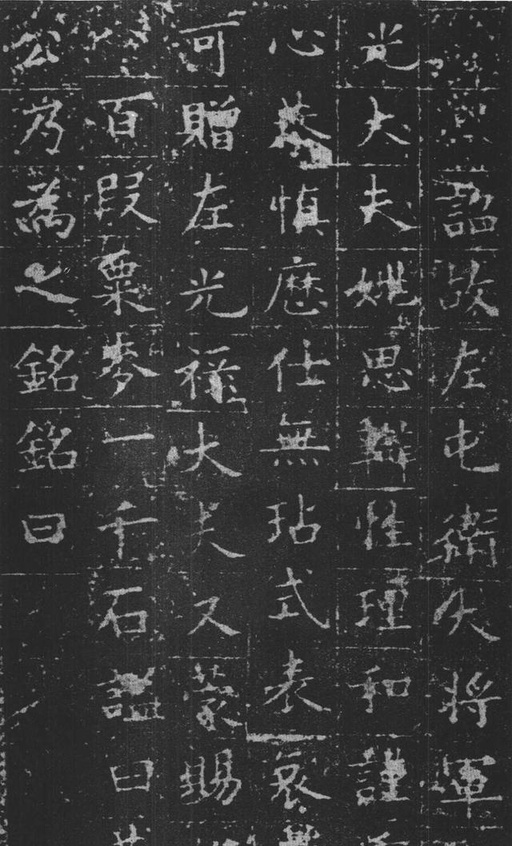 詔故左屯衛大將軍
光大夫姚思辯性理和謹
心恭慎歷仕無玷式表哀
可贈左光祿大夫又蒙賜
百段粟麥一千石謚曰
公乃為之銘銘曰